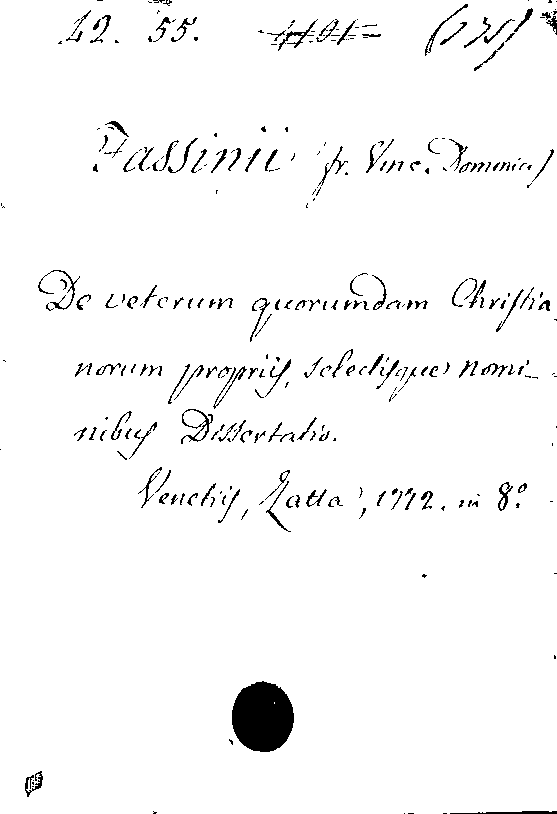 42. 55. 4191 (175)
Fassinii (fr. Vinc. Dominici)
De veterum quorumdam Christia
norum propriis, selectisque nomi-
nibus Dissertatio.
Venetiis, Zatta, 1772. in 8.°